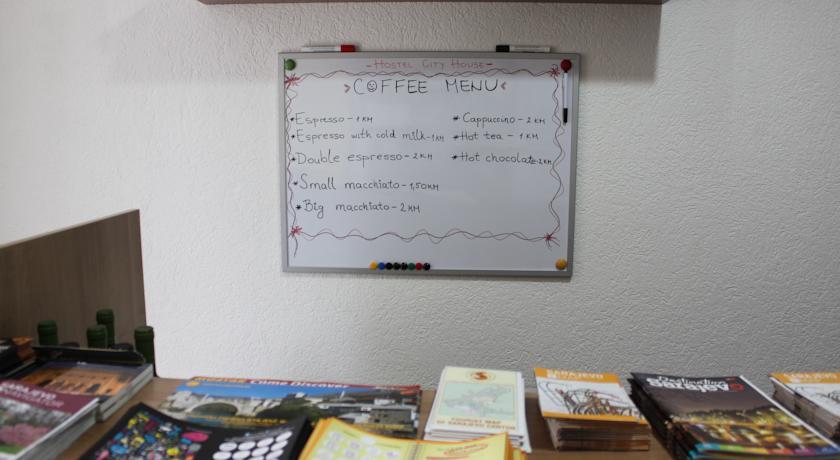 -HOSTEL CITY HOUSE-
COFFEE MENU
*Espresso - 1 KM
*Espresso with cold milk - 1 KM
*Double espresso - 2 KM
*Small macchiato - 1,50 KM
*Big macchiato - 2 KM
*Cappuccino - 2 KM
*Hot tea - 1 KM
*Hot chocolate - 2 KM
SARAJEVO
Come Discover
TOURIST MAP
OF SARAJEVO CANTON
SARAJEVO
Destination
SARAJEVO